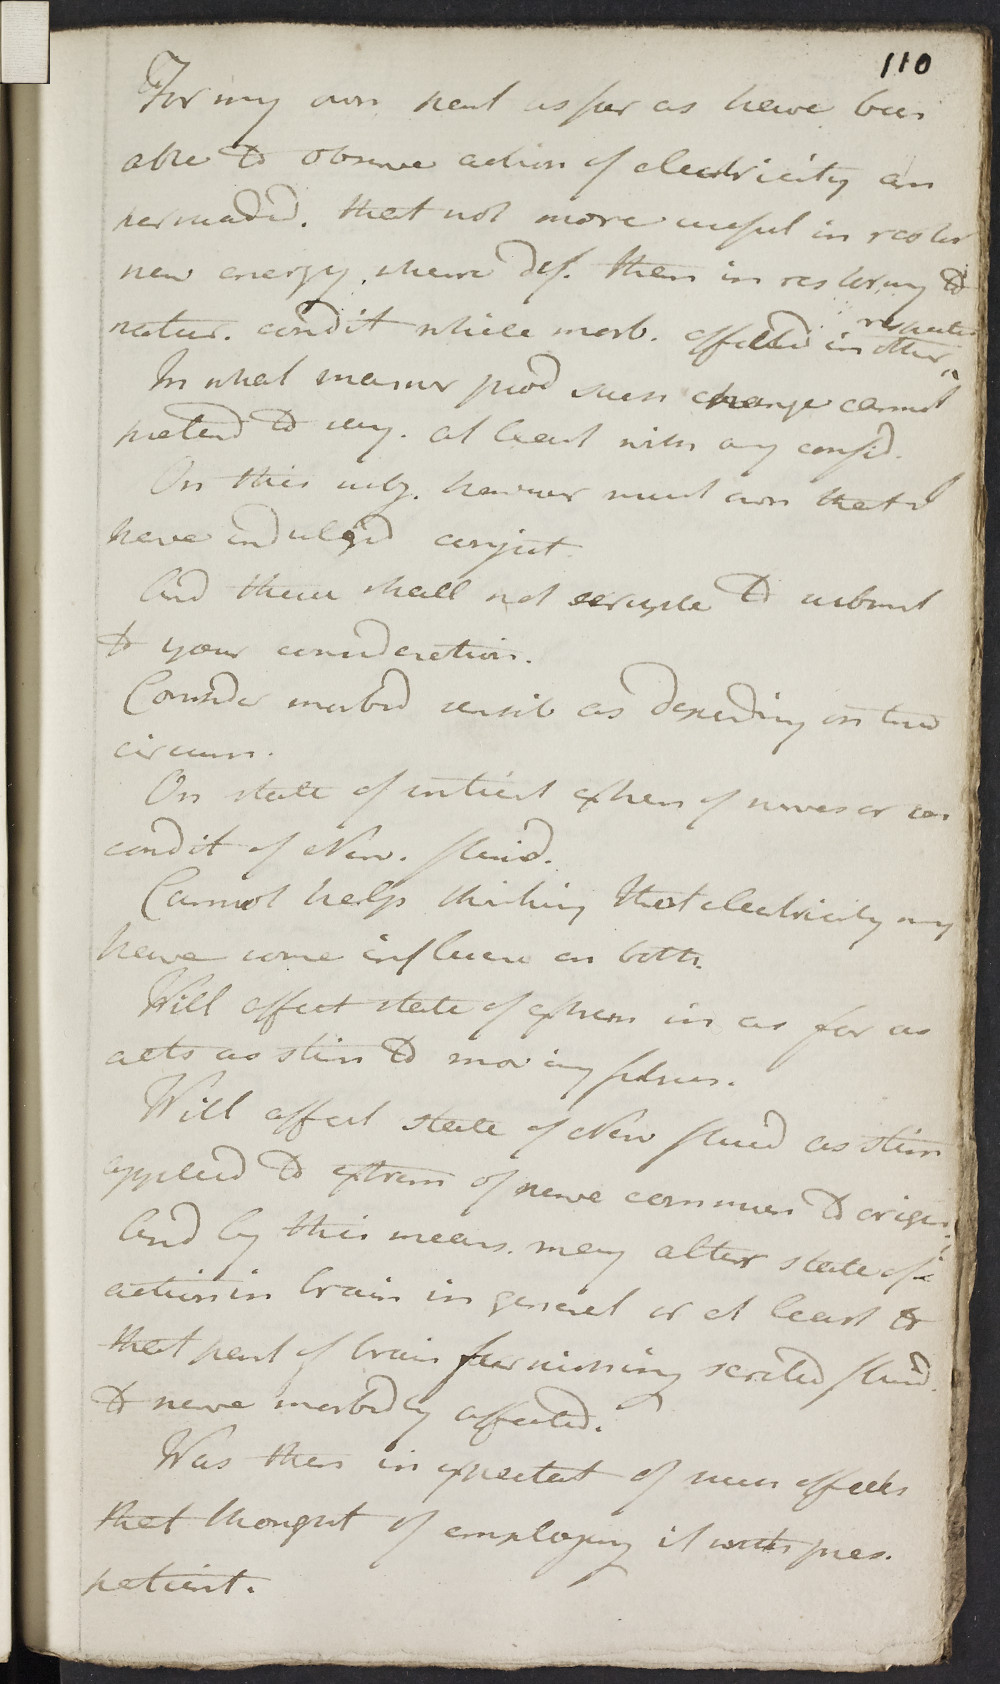 110
For my own part as far as have been
able to observe action of electricity am
persuaded. that not more useful in restor
new energy. where def. than in restoring to
natur. condit where morb. affected in other
respects
In what manner prod such change cannot
pretend to say. at least with any confid.
On this subj. however must own that I
have indulged conject
And these shall not scruple to submit
to your consideration.
Consider morbid sensib as depending on two
circum.
On state of sentient extrem of nerves or on
condit of Nerv. fluid.
Cannot help thinking that electricity may
have some influence on both.
Will affect state of extrem in as far as
acts as stim to moving fibres.
Will affect state of Nerv fluid as stim
applied to extrem of nerve commun to origin
And by this means. may alter state of
action in brain in general or at least
that part of brain furnishing secreted fluid.
to nerve morbidly affected.
Was then in expectat of such effects
that thought of employing it with pres.
patient.